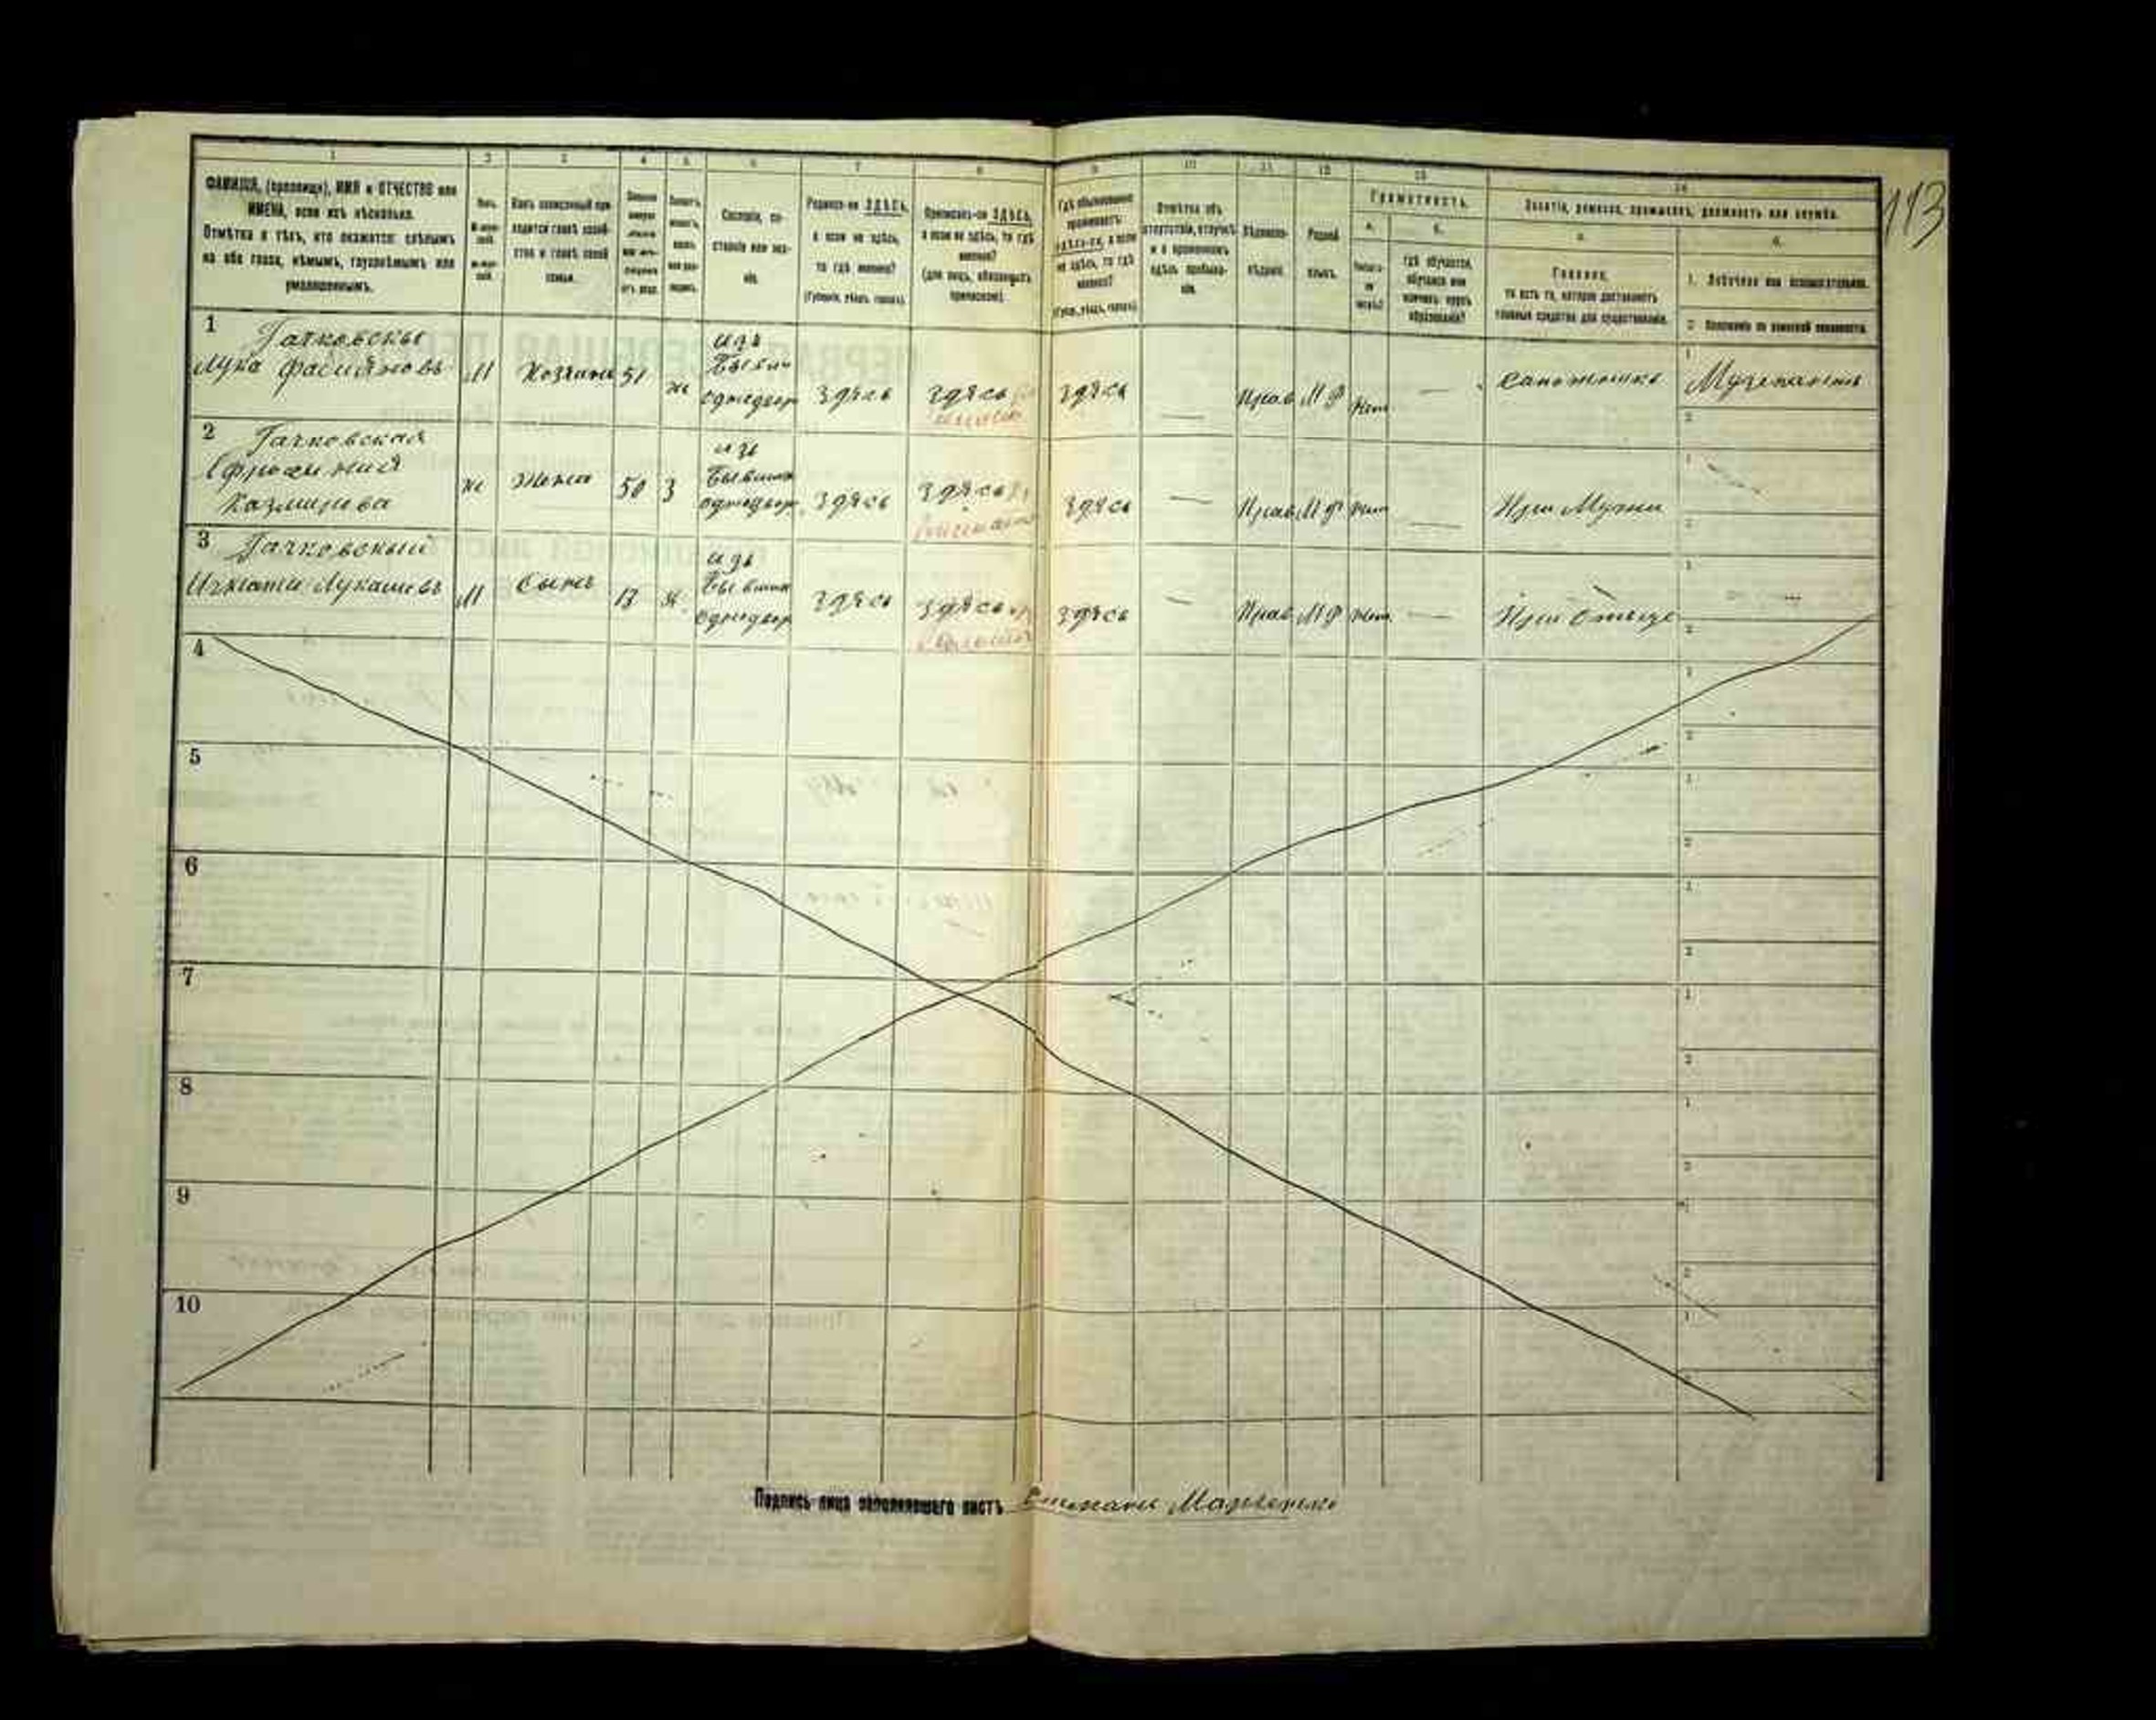 113
1 2 3 4 5 6 7 8 9 10 11 12 13 14
ФАМИЛІЯ, (прозвище), ИМЯ и ОТЧЕСТВО или
ИМЕНА, если ихъ нѣсколько.
Отмѣтка о тѣхъ, кто окажется: слѣпымъ
на оба глаза, нѣмымъ, глухонѣмымъ или
умалишеннымъ.
Какъ записанный при-
ходится главѣ хозяй-
ства и главѣ своей
семьи.
Сословіе, со-
стояніе или зва-
ніе.
Родился-ли ЗДѢСЬ,
а если не здѣсь,
то гдѣ именно?
(Губернія, уѣздъ, городъ).
Приписанъ-ли ЗДѢСЬ,
а если не здѣсь, то гдѣ
именно?
(для лицъ, обязанныхъ
припискою).
Гдѣ обыкновенно
проживаетъ:
здѣсь-ли, а если
не здѣсь, то гдѣ
именно?
(Губ., уѣздъ, городъ)
Отмѣтка объ
отсутствіи, отлучкѣ
и о временномъ
здѣсь пребыва-
ніи.
Вѣроиспо-
вѣданіе.
Родной
языкъ.
Грамотность.
а. б.
Умѣетъ-
ли
читать?
Гдѣ обучается,
обучался или
кончилъ курсъ
образованія?
Занятіе, ремесло, промыселъ, должность или служба.
а. б.
Главное,
то есть то, которое доставляетъ
главныя средства для существованія.
1. Побочное или вспомогательное.
2. Положеніе по воинской повинности.
1 Гачковскы
Лука
М Хозяинъ 51 ж
изъ
Бывш
однодвор
здѣсь здѣсь здѣсь — Прав М Р Нет — Сапожникъ Музыкантъ
2 Гачковская
Ефросиния
Казмирова
ж Жена 50 З
изъ
Бывших
однодвор
здѣсь здѣсь здѣсь — Прав М Р Нет — При Мужи
3 Гачковский
Игнати Лукашевъ
М Сынъ 13
изъ
Бывших
однодвор
здѣсь здѣсь здѣсь — Прав М Р Нет — При Отце
4
5
6
7
8
9
10
Подпись лица заполнявшего листъ